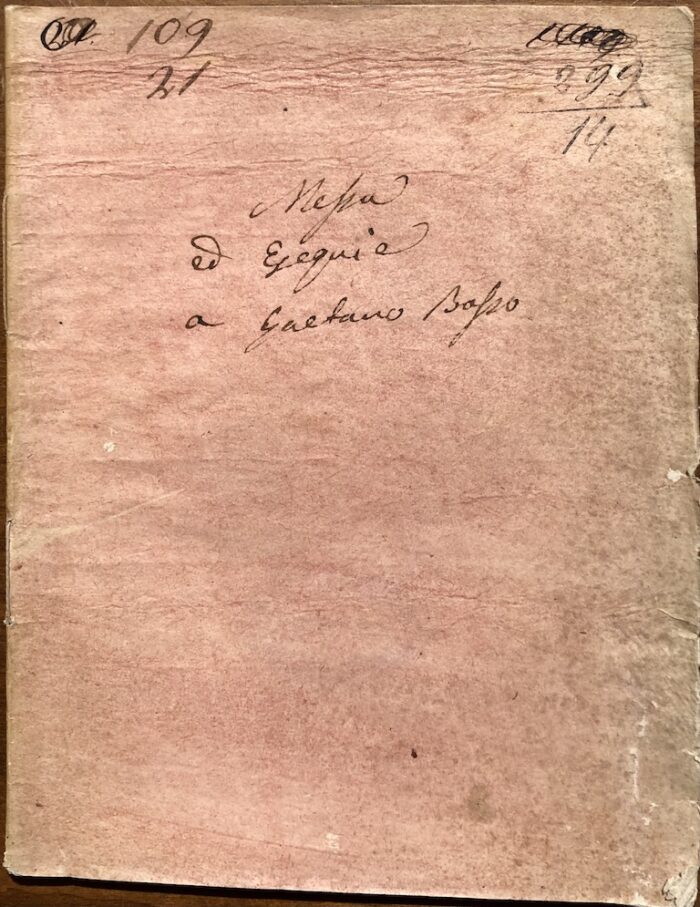 109
21
299
14
Messa
ed Esequie
a Gaetano Basso